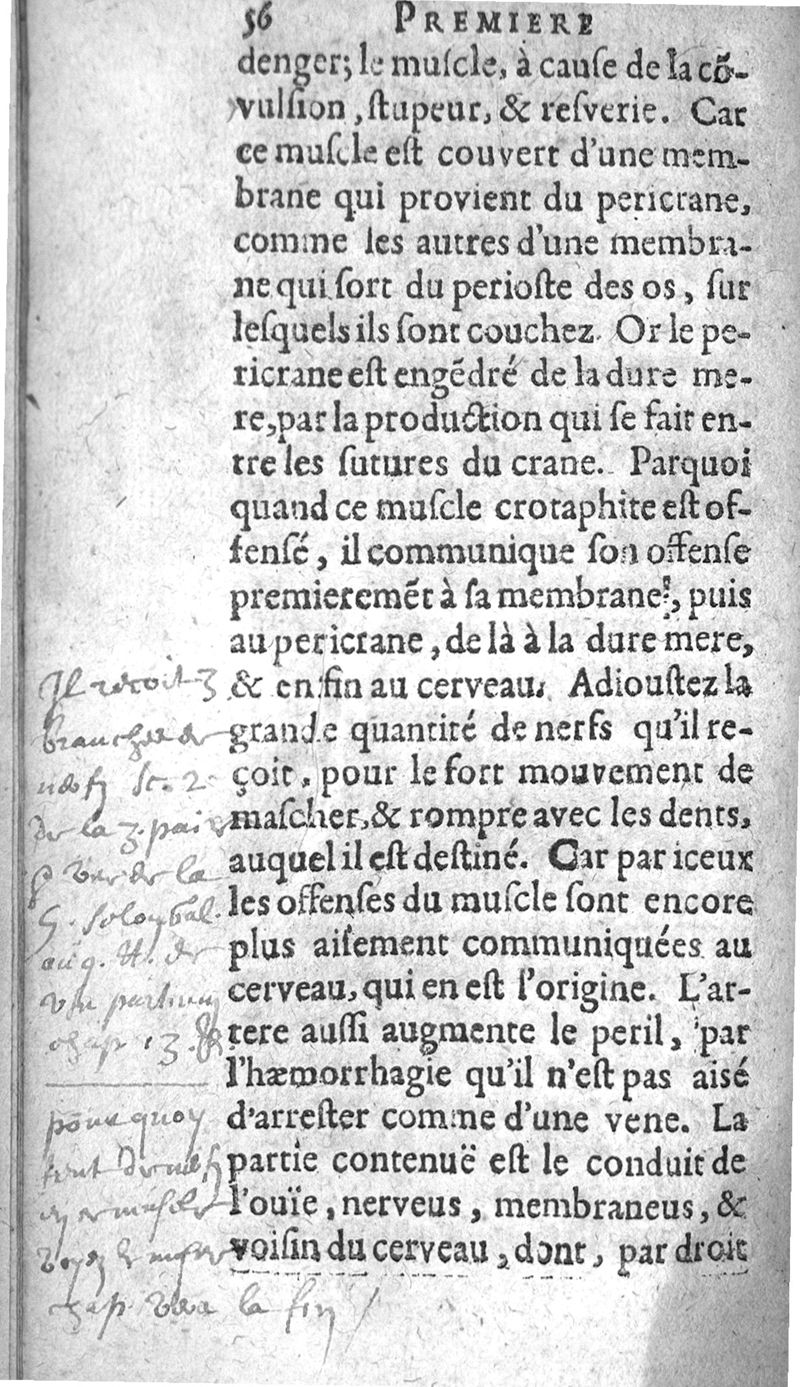 56 PREMIERE
denger; le muſcle, à cauſe de la cõ-
vulſion, ſtupeur, & reſverie. Car
ce muſcle eſt couvert d'une mem-
brane qui provient du pericrane,
comme les autres d'une membra-
ne qui ſort du perioſte des os, ſur
leſquels ils ſont couchez. Or le pe-
ricrane eſt engẽdré de la dure me-
re, par la production qui ſe fait en-
tre les ſutures du crane. Parquoi
quand ce muſcle crotaphite eſt of-
fenſé, il communique ſon offenſe
premieremẽt à ſa membrane, puis
au pericrane, de là à la dure mere,
& enfin au cerveau. Adiouſtez la
grande quantité de nerfs qu'il re-
çoit, pour le fort mouvement de
maſcher, & rompre avec les dents,
auquel il eſt deſtiné. Car par iceux
les offenſes du muſcle ſont encore
plus aiſement communiquées au
cerveau, qui en eſt l'origine. L'ar-
tere auſſi augmente le peril, par
l'hæmorrhagie qu'il n'eſt pas aisé
d'arreſter comme d'une vene. La
partie contenuë eſt le conduit de
l'ouïe, nerveus, membraneus, &
voiſin du cerveau, dont, par droit
Il recoit 3
branches de
de la 3. pai
de la
chap 13.
pourquoy
chap vers la fin